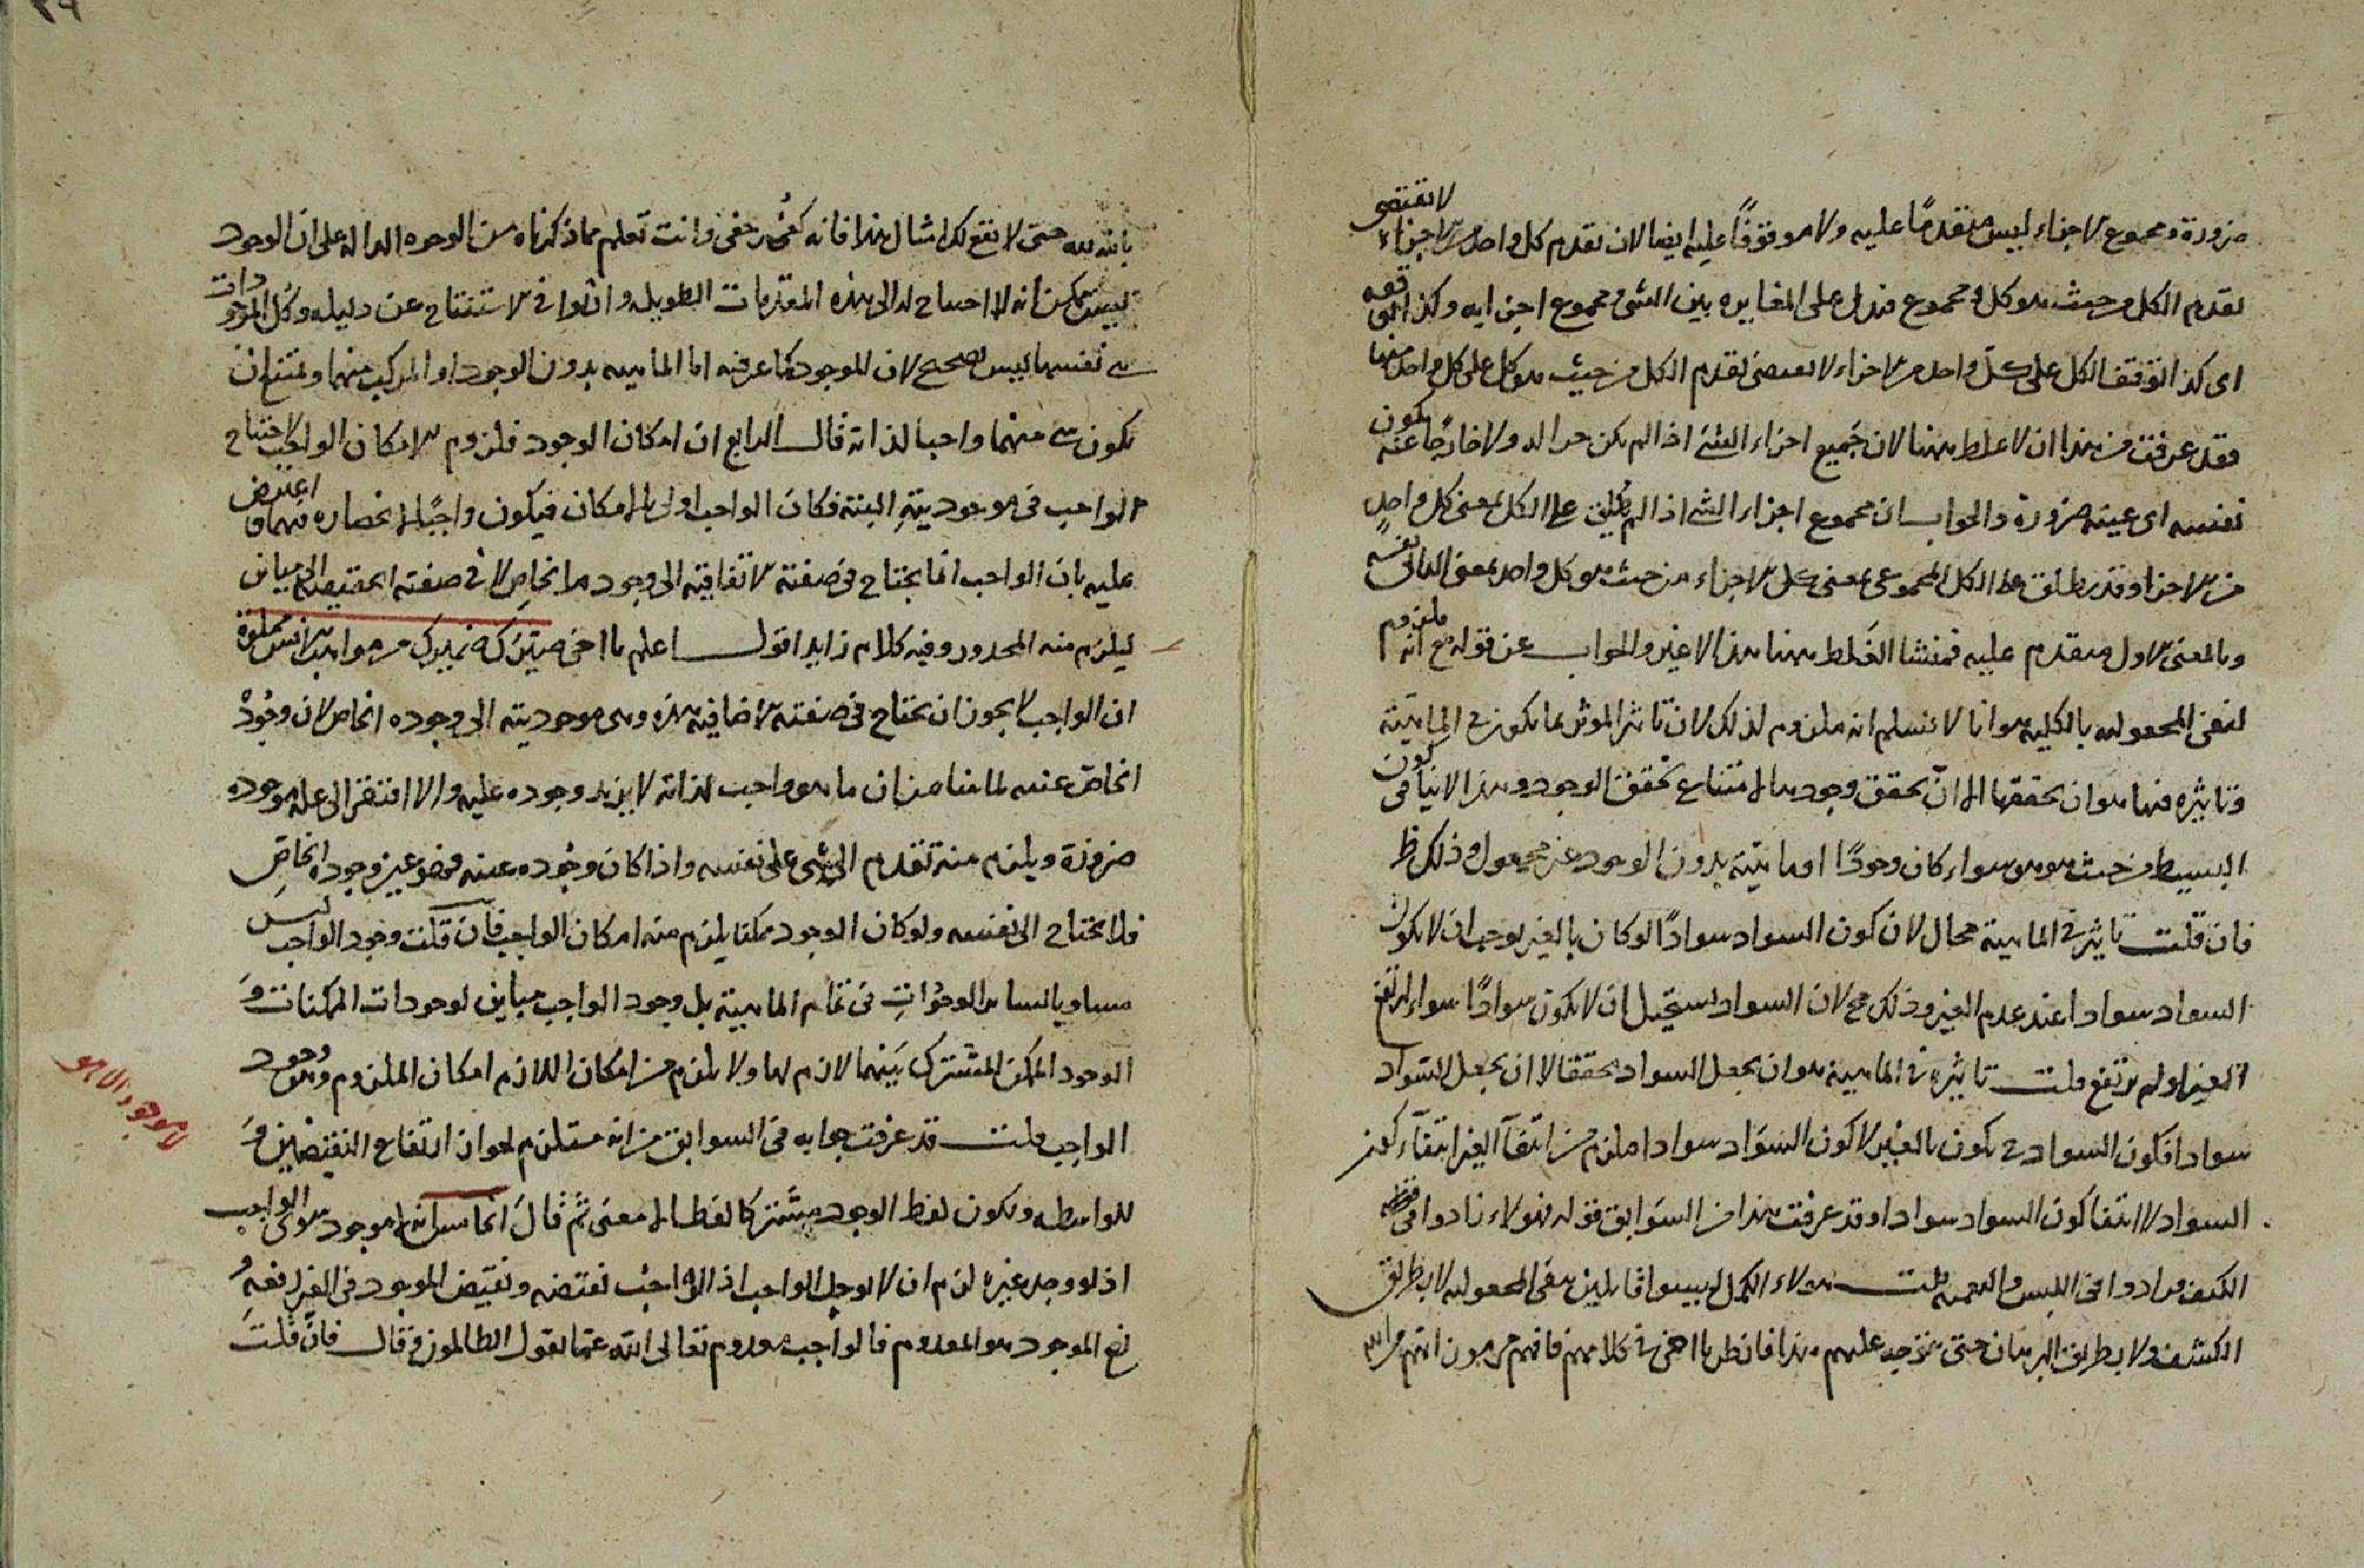 ضرورة ومجموع الاجزاء ليس متقدمًا عليه ولا موقوفًا عليه ايضا لان تقدم كل واحد من الاجزاء لا تقتضى
تقدم الكل من حيث هو كل ومجموع فدل على المغايره بين الشى ومجموع اجزايه وكذا توقفه
اى كذا توقف الكل على كل واحد من الاجزاء لا يقتضى تقدم الكل من حيث هو كل على كل واحد منها
فقد عرفت من هذا ان لا غلط ههنا لان جميع اجزاء الشئ اذا لم يكن جزا له ولا خارجًا عنه يكون
نفسه اى عينه ضرورة والجواب ان مجموع اجزاء الشئ اذا لم يطلق على الكل بمعنى كل واحدٍ
من الاجزا وقد يطلق على الكل المجموعى بمعنى كل الاجزاء من حيث هو كل واحد بمعنى الثانى نفسه
وبالمعنى الاول متقدم عليه فمنشا الغلط ههنا هذا لا غير والجواب عن قوله مع انه ملزوم
لنفى المجعوليه بالكليه هو انا لا نسلم انه ملزوم لذلك لان تاثر الموثر بما يكون فى الماهيّة
وتاثيره فيها هو ان يحققها الا ان يحقق وجودها لامتناع تحقق الوجود وهذا لا ينافى كون
البسيط من حيث هو هو سواء كان وجودًا او ماهيّة بدون الوجود غير مجعول وذلك ظ
فان قلت تاثير فى الماهية محال لان كون السواد سوادًا لو كان بالغير لوجب ان لا يكون
السواد سوادا عند عدم الغير وذلك مح لان السواد يستحيل ان لا يكون سوادًا سواء ارتفع
الغير او لم يرتفع قلت تاثيره فى الماهية هو ان يجعل السواد محققا لا ان يجعل السّواد
سوادا فكون السواد فى يكون بالغير لا كون السوَاد سوادا فلزم من انتفآ الغير انتفآء كون
السواد لا انتفا كون السواد سوادا وقد عرفت هذا من السوَابق قوله هولاء زادوا فى
الكشف مرادوا فى اللبس والتعميه قلت هولاء الكمل ليسوا قايلين بنفى المجعوليه لا بطريق
الكشف ولا بطريق البرهان حتى يتوجه عليهم هذا فانظر يا اخى فى كلامهم فافهم
بالله حتى لا يقع لك امثال هذا فانه كفى وانت تعلم مما ذكرناه من الوجوه الداله على ان الوجود
ليس بممكن انه لا احتياج له الى هذه المقدمات الطويله وان توافى الاستنتاج عن دليله وكل الموجودات
فى نفسها ليس بصحيح لان الموجود كما عرفته اما الماهيه بدون الوجود او المركب منهما ويمتنع ان
يكون شى منهما واجبا لذاته قال الرابع ان امكان الوجود فلزوم لامكان الواجب لاحتياج
الواجب فى موجوديتهِ البتة فكان الواجب اولى بالامكان فيكون واجبًا اعترض
عليه بان الواجب انما يحتاج فى صفته الاتفاقية الى وجوده الخاص لا فى صفته الحقيقيه
ليلزم منه المحدور وفيه كلام زايد اقول اعلم يا اخى
ان الواجب لا يجوز ان يحتاج فى صفته الاضافيه هذه وهى موجوديته الى وجوده الخاص لان وجُودْ
الخاصّ عينه لما بينا من ان ما هو واجب لذاته لا يزيد وجوده عليه والا افتقر الى عله موجوده
ضرورة ويلزم منه تقدم الشى على نفسه واذا كان وجوده عينه فهو عين وجوده الخاصِ
فلا يحتاج الى نفسه ولو كان الوجود ممكنا يلزم منه امكان الواجب فان قلت وجود الواجب ليس
مساويا لساير الوجودات فى تمام الماهية بل وجود الواجب مباين لوجودات الممكنات وَ
الوجود الممكن المشترك بَينهما لازم لها ولا يلزم من امكان اللازم امكان الملزوم وهو وجود
الواجب قلت قد عرفت جوابه فى السوابق من انه مستلزم لجواز ارتفاع النقيضين وَ
للواسطه ويكون لفظ الوجود مشتركا لفظا لا معنى ثمّ قالَ الخامس انه لا موجود سوى الواجب
اذ لو وجد غيره لزم ان لا يوجد الواجب اذ الواجب نقيضه ونقيض الموجود فى الغير رفعهُ
رفع الموجود هو المعدوم فالواجب معدوم تعالى الله عمّا يقول الظالمون وقال فان قلتَ
لا موجود الا هو